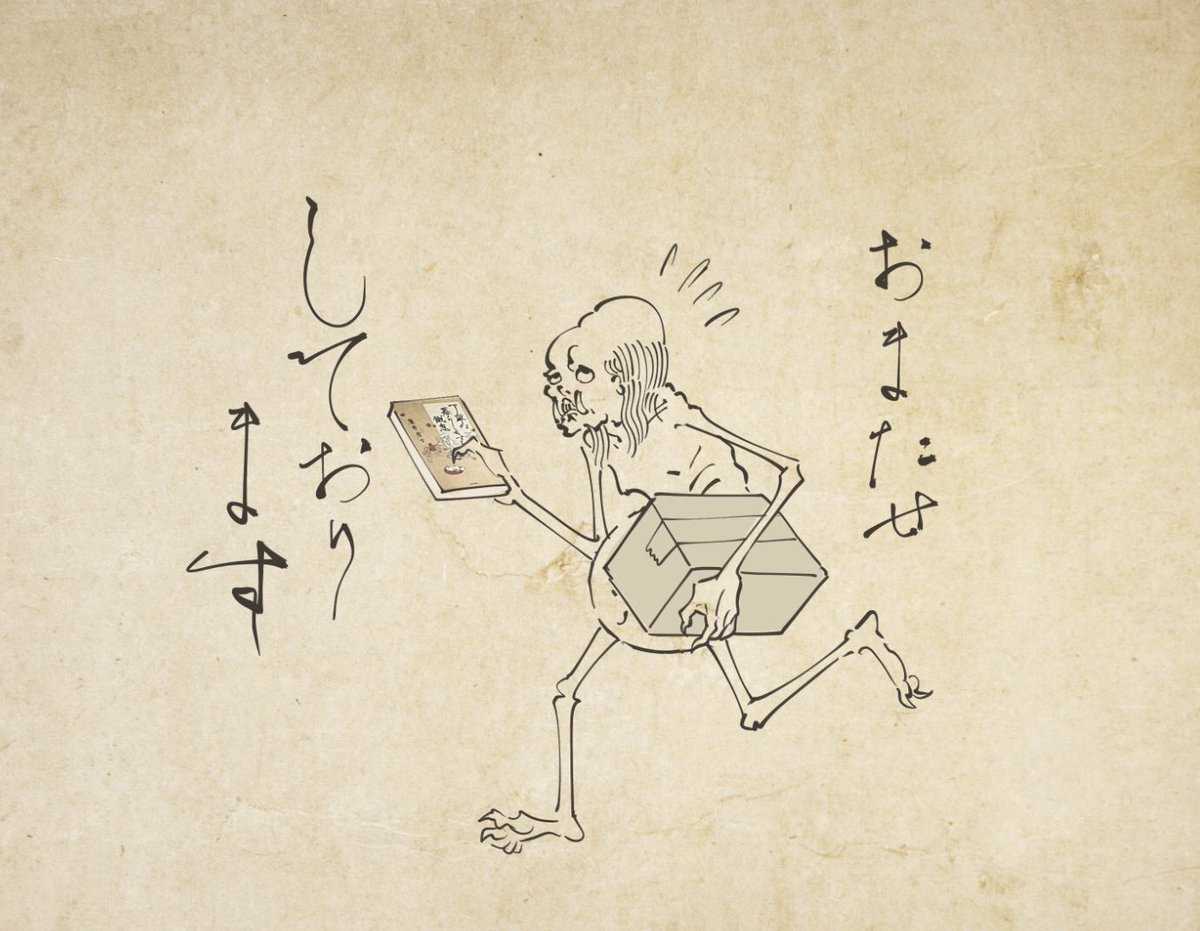 おまたせ
しており
ます